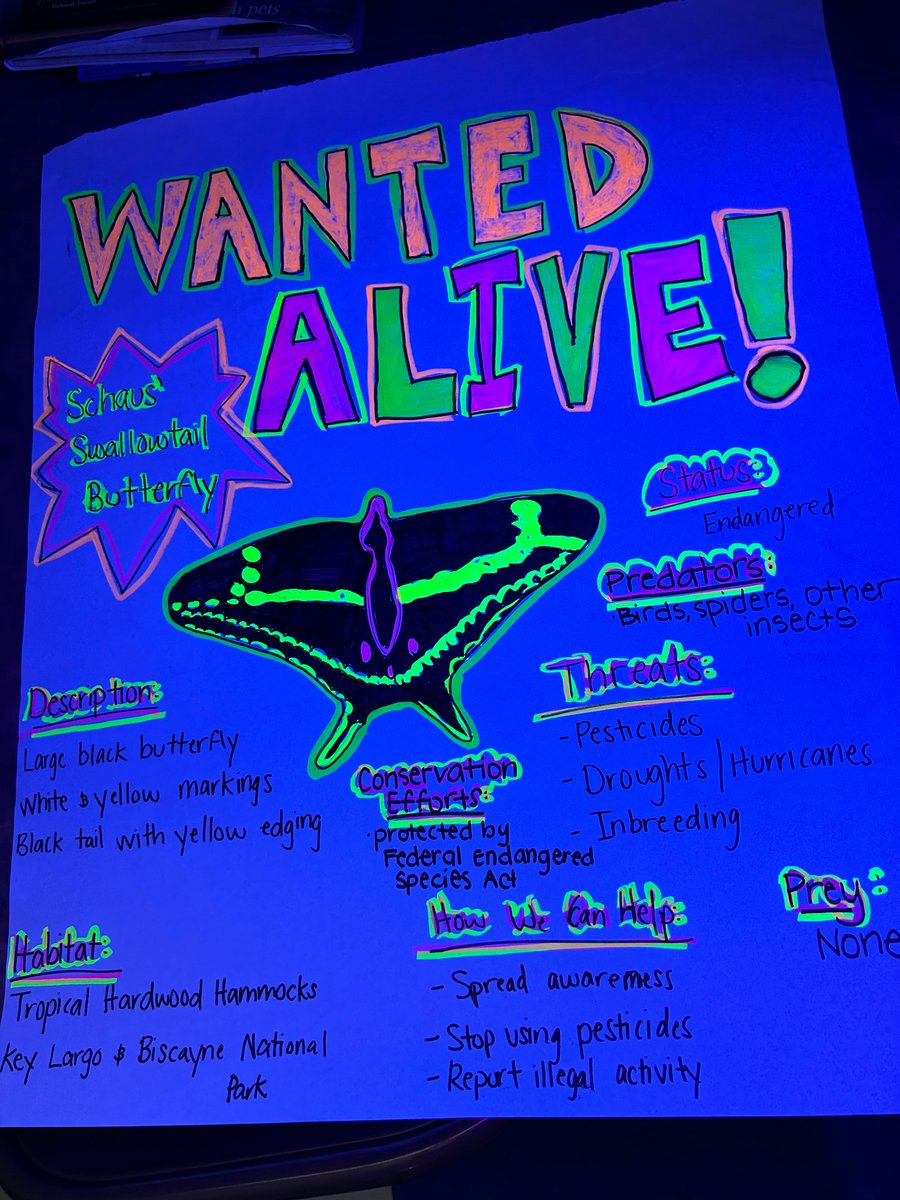 pets
WANTED
ALIVE!
Schaus'
Swallowtail
Butterfly
Status:
Endangered
Predators:
·Birds, spiders, other
insects
Threats:
- Pesticides
- Droughts / Hurricanes
- Inbreeding
Description:
Large black butterfly
White & yellow markings
Black tail with yellow edging
Conservation
Efforts:
·protected by
Federal Endangered
Species Act
Prey:
None
How We Can Help:
- Spread awareness
- Stop using pesticides
- Report illegal activity
Habitat:
Tropical Hardwood Hammocks
Key Largo & Biscayne National
Park